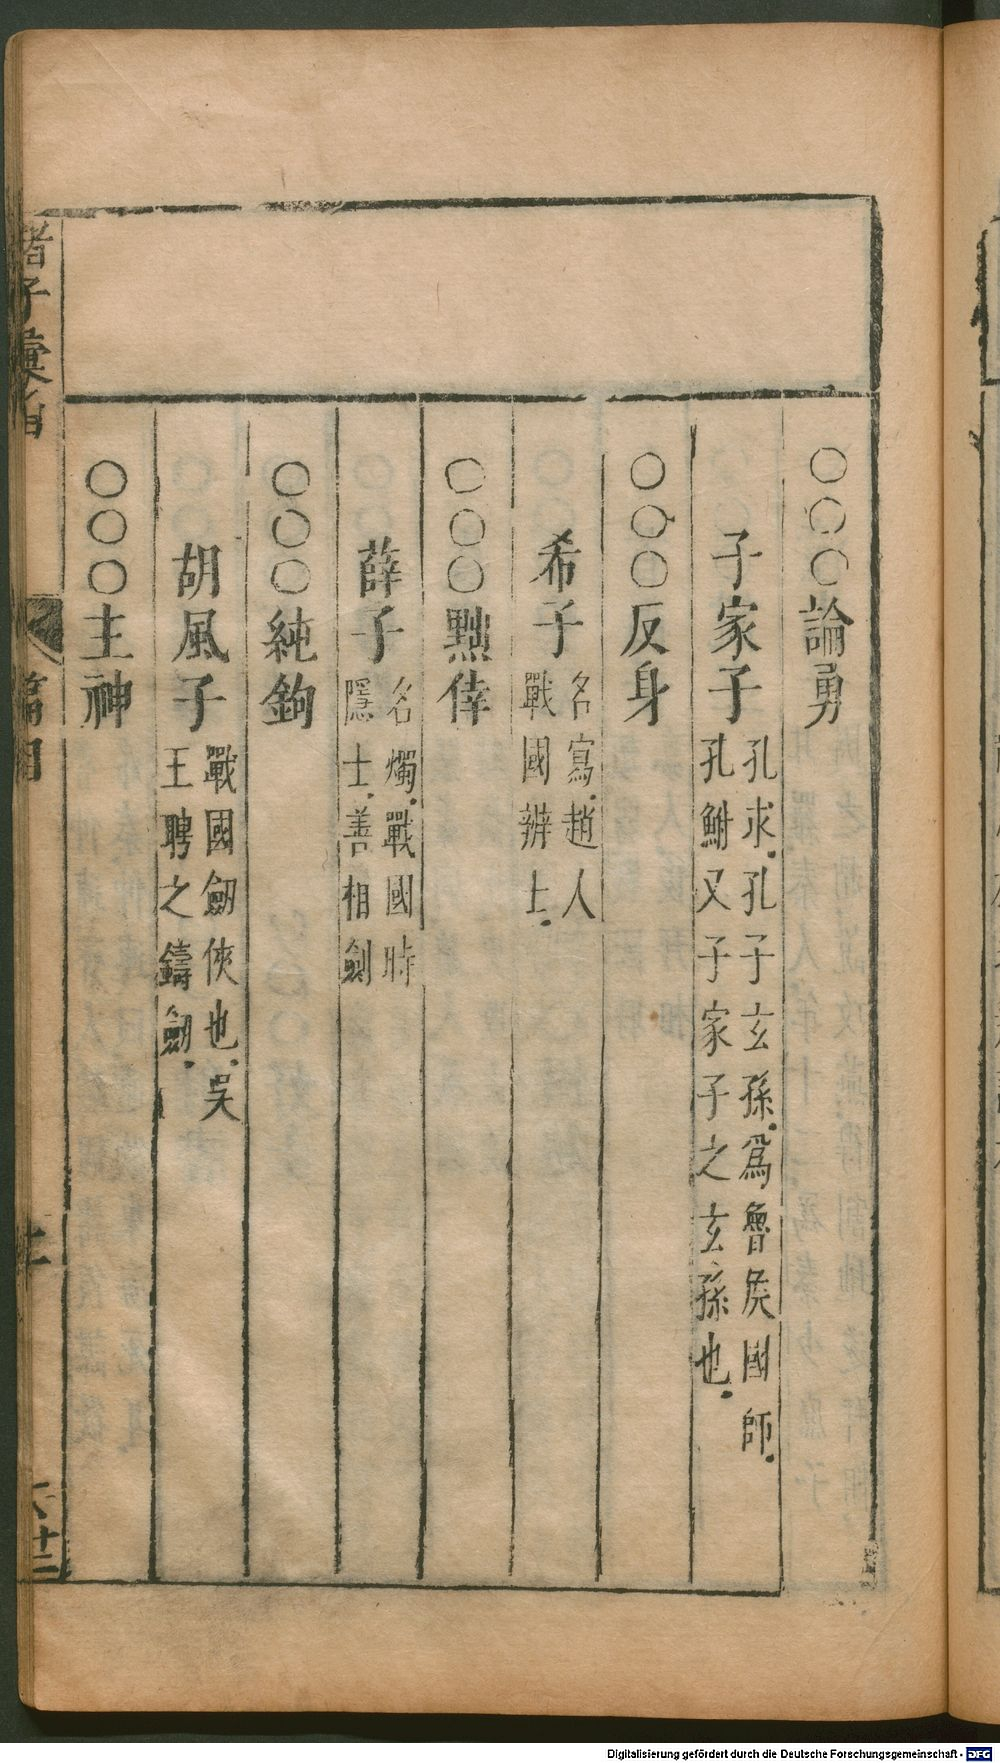 〇〇〇論勇
子家子 孔求.孔子玄孫.爲魯侯國師.
孔鮒又子家子之玄孫也.
〇〇〇反身
希子 名寫.趙人
戰國辨士.
〇〇〇黜倖
薛子 名燭.戰國時
隱士.善相劍
〇〇〇純鉤
胡風子 戰國劒俠也.吳
王聘之鑄劒.
〇〇〇主神
諸子彙函
篇目
六十二
Digitalisierung gefördert durch die Deutsche Forschungsgemeinschaft - DFG